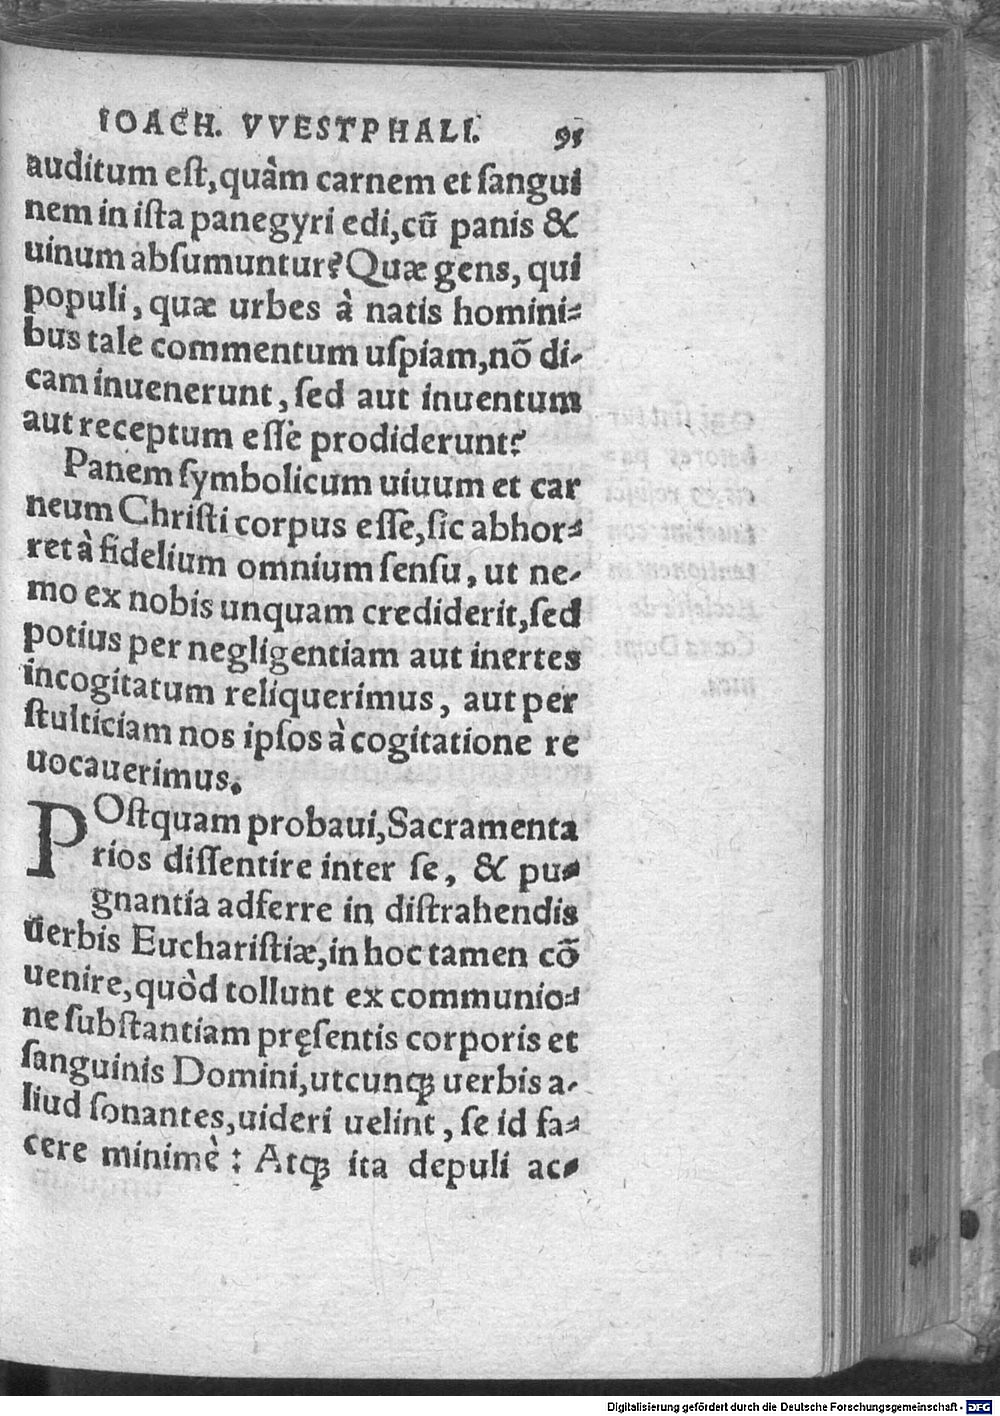 IOACH. VVESTPHALI. 95
auditum eſt, quàm carnem et ſangui
nem in iſta panegyri edi, cũ panis &
uinum abſumuntur? Quæ gens, qui
populi, quæ urbes à natis homini-
bus tale commentum uſpiam, nõ di-
cam inuenerunt, ſed aut inuentum
aut receptum eſſe prodiderunt?
Panem ſymbolicum uiuum et car
neum Chriſti corpus eſſe, ſic abhor-
ret à fidelium omnium ſenſu, ut ne-
mo ex nobis unquam crediderit, ſed
potius per negligentiam aut inertes
incogitatum reliquerimus, aut per
ſtulticiam nos ipſos à cogitatione re
uocauerimus.
POſtquam probaui, Sacramenta
rios diſſentire inter ſe, & pu-
gnantia adferre in diſtrahendis
uerbis Euchariſtiæ, in hoc tamen cõ
uenire, quòd tollunt ex communio-
ne ſubſtantiam pręſentis corporis et
ſanguinis Domini, utcunq; uerbis a-
liud ſonantes, uideri uelint, ſe id fa-
cere minimè: Atq; ita depuli ac-
Digitalisierung gefördert durch die Deutsche Forschungsgemeinschaft - DFG